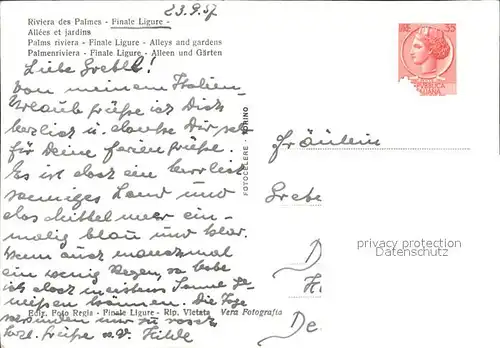 23.9.57
Riviera des Palmes - Finale Ligure -
Allées et jardins
Palms riviera - Finale Ligure - Alleys and gardens
Palmenriviera - Finale Ligure - Alleen und Gärten
LIRE 35
Liebe Gretl!
Von meinem Italien-
Urlaub grüße ich Dich
herzlich u. danke Dir sehr
für Deine Feriengrüße.
Es ist doch ein herrlich
sonniges Land und
das Mittelmeer ein-
malig blau und klar.
Wenn auch manchmal
ein wenig Regen, so habe
ich doch meistens Sonne ge-
nießen können. Die Tage
nur zu rasch
herzl. Grüße Hilde
Fräulein
Grete
D
H
De
FOTOCELERE - TORINO
privacy protection
Datenschutz
Ediz. Foto Regis - Finale Ligure - Rip. Vietata Vera Fotografia